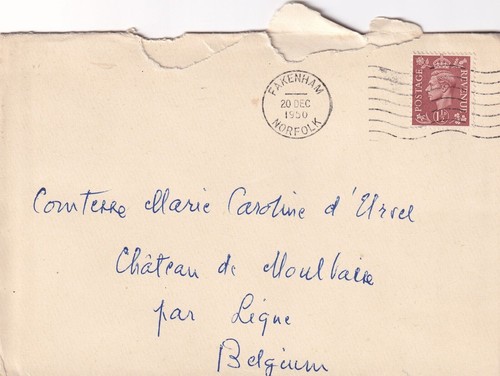 FAKENHAM
20 DEC
1950
NORFOLK
POSTAGE
REVENUE
1½D
Comtesse Marie Caroline d'Ursel
Château de Moulbaix
par Ligne
Belgium